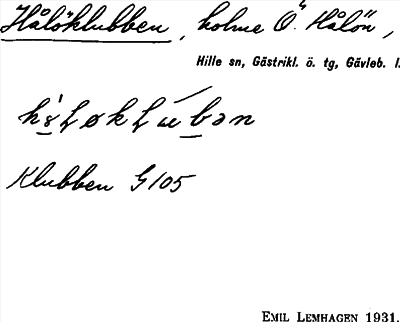 Hålöklubben, holme Ö. Hålön,
Hille sn, Gästrikl. ö. tg, Gävleb. l.
Klubben G 105
EMIL LEMHAGEN 1931.